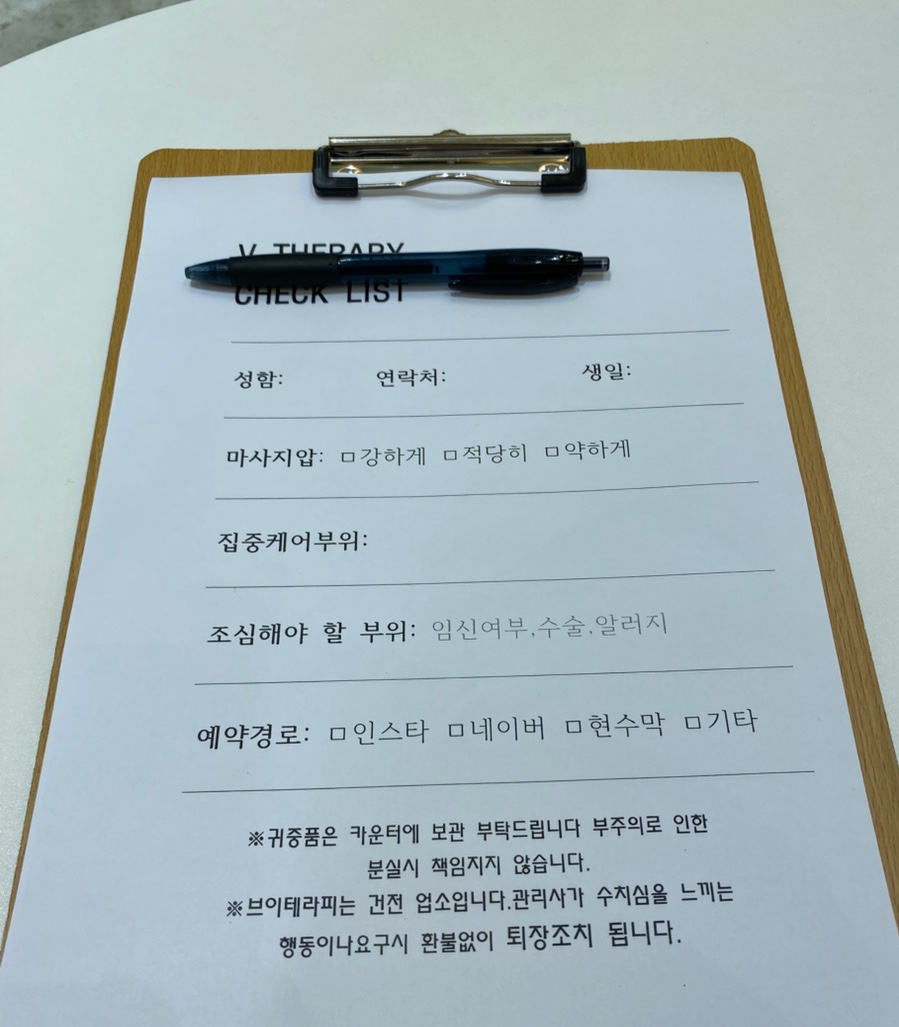 V THERAPY
CHECK LIST
성함: 연락처: 생일:
마사지압: □강하게 □적당히 □약하게
집중케어부위:
조심해야 할 부위: 임신여부,수술,알러지
예약경로: □인스타 □네이버 □현수막 □기타
※귀중품은 카운터에 보관 부탁드립니다 부주의로 인한
분실시 책임지지 않습니다.
※브이테라피는 건전 업소입니다.관리사가 수치심을 느끼는
행동이나요구시 환불없이 퇴장조치 됩니다.